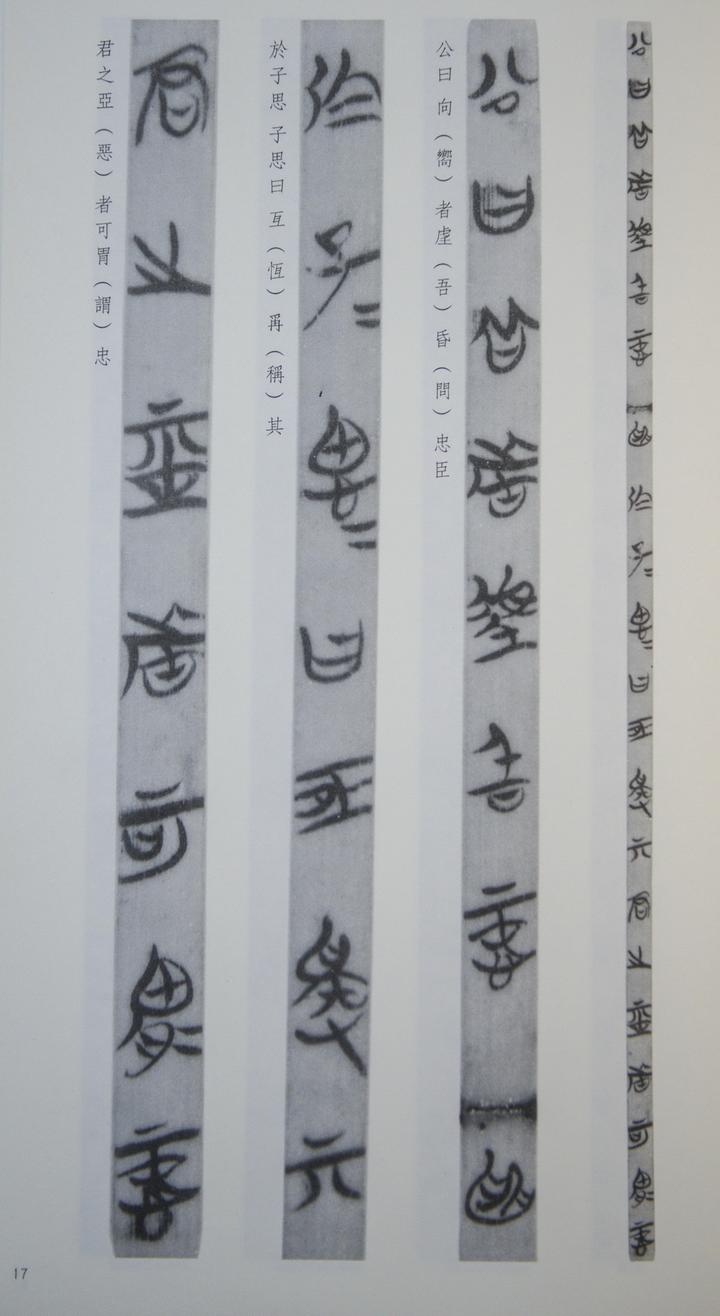 公曰向（嚮）者虗（吾）昏（問）忠臣
於子思子思曰亙（恆）爯（稱）其
君之亞（惡）者可胃（謂）忠
17